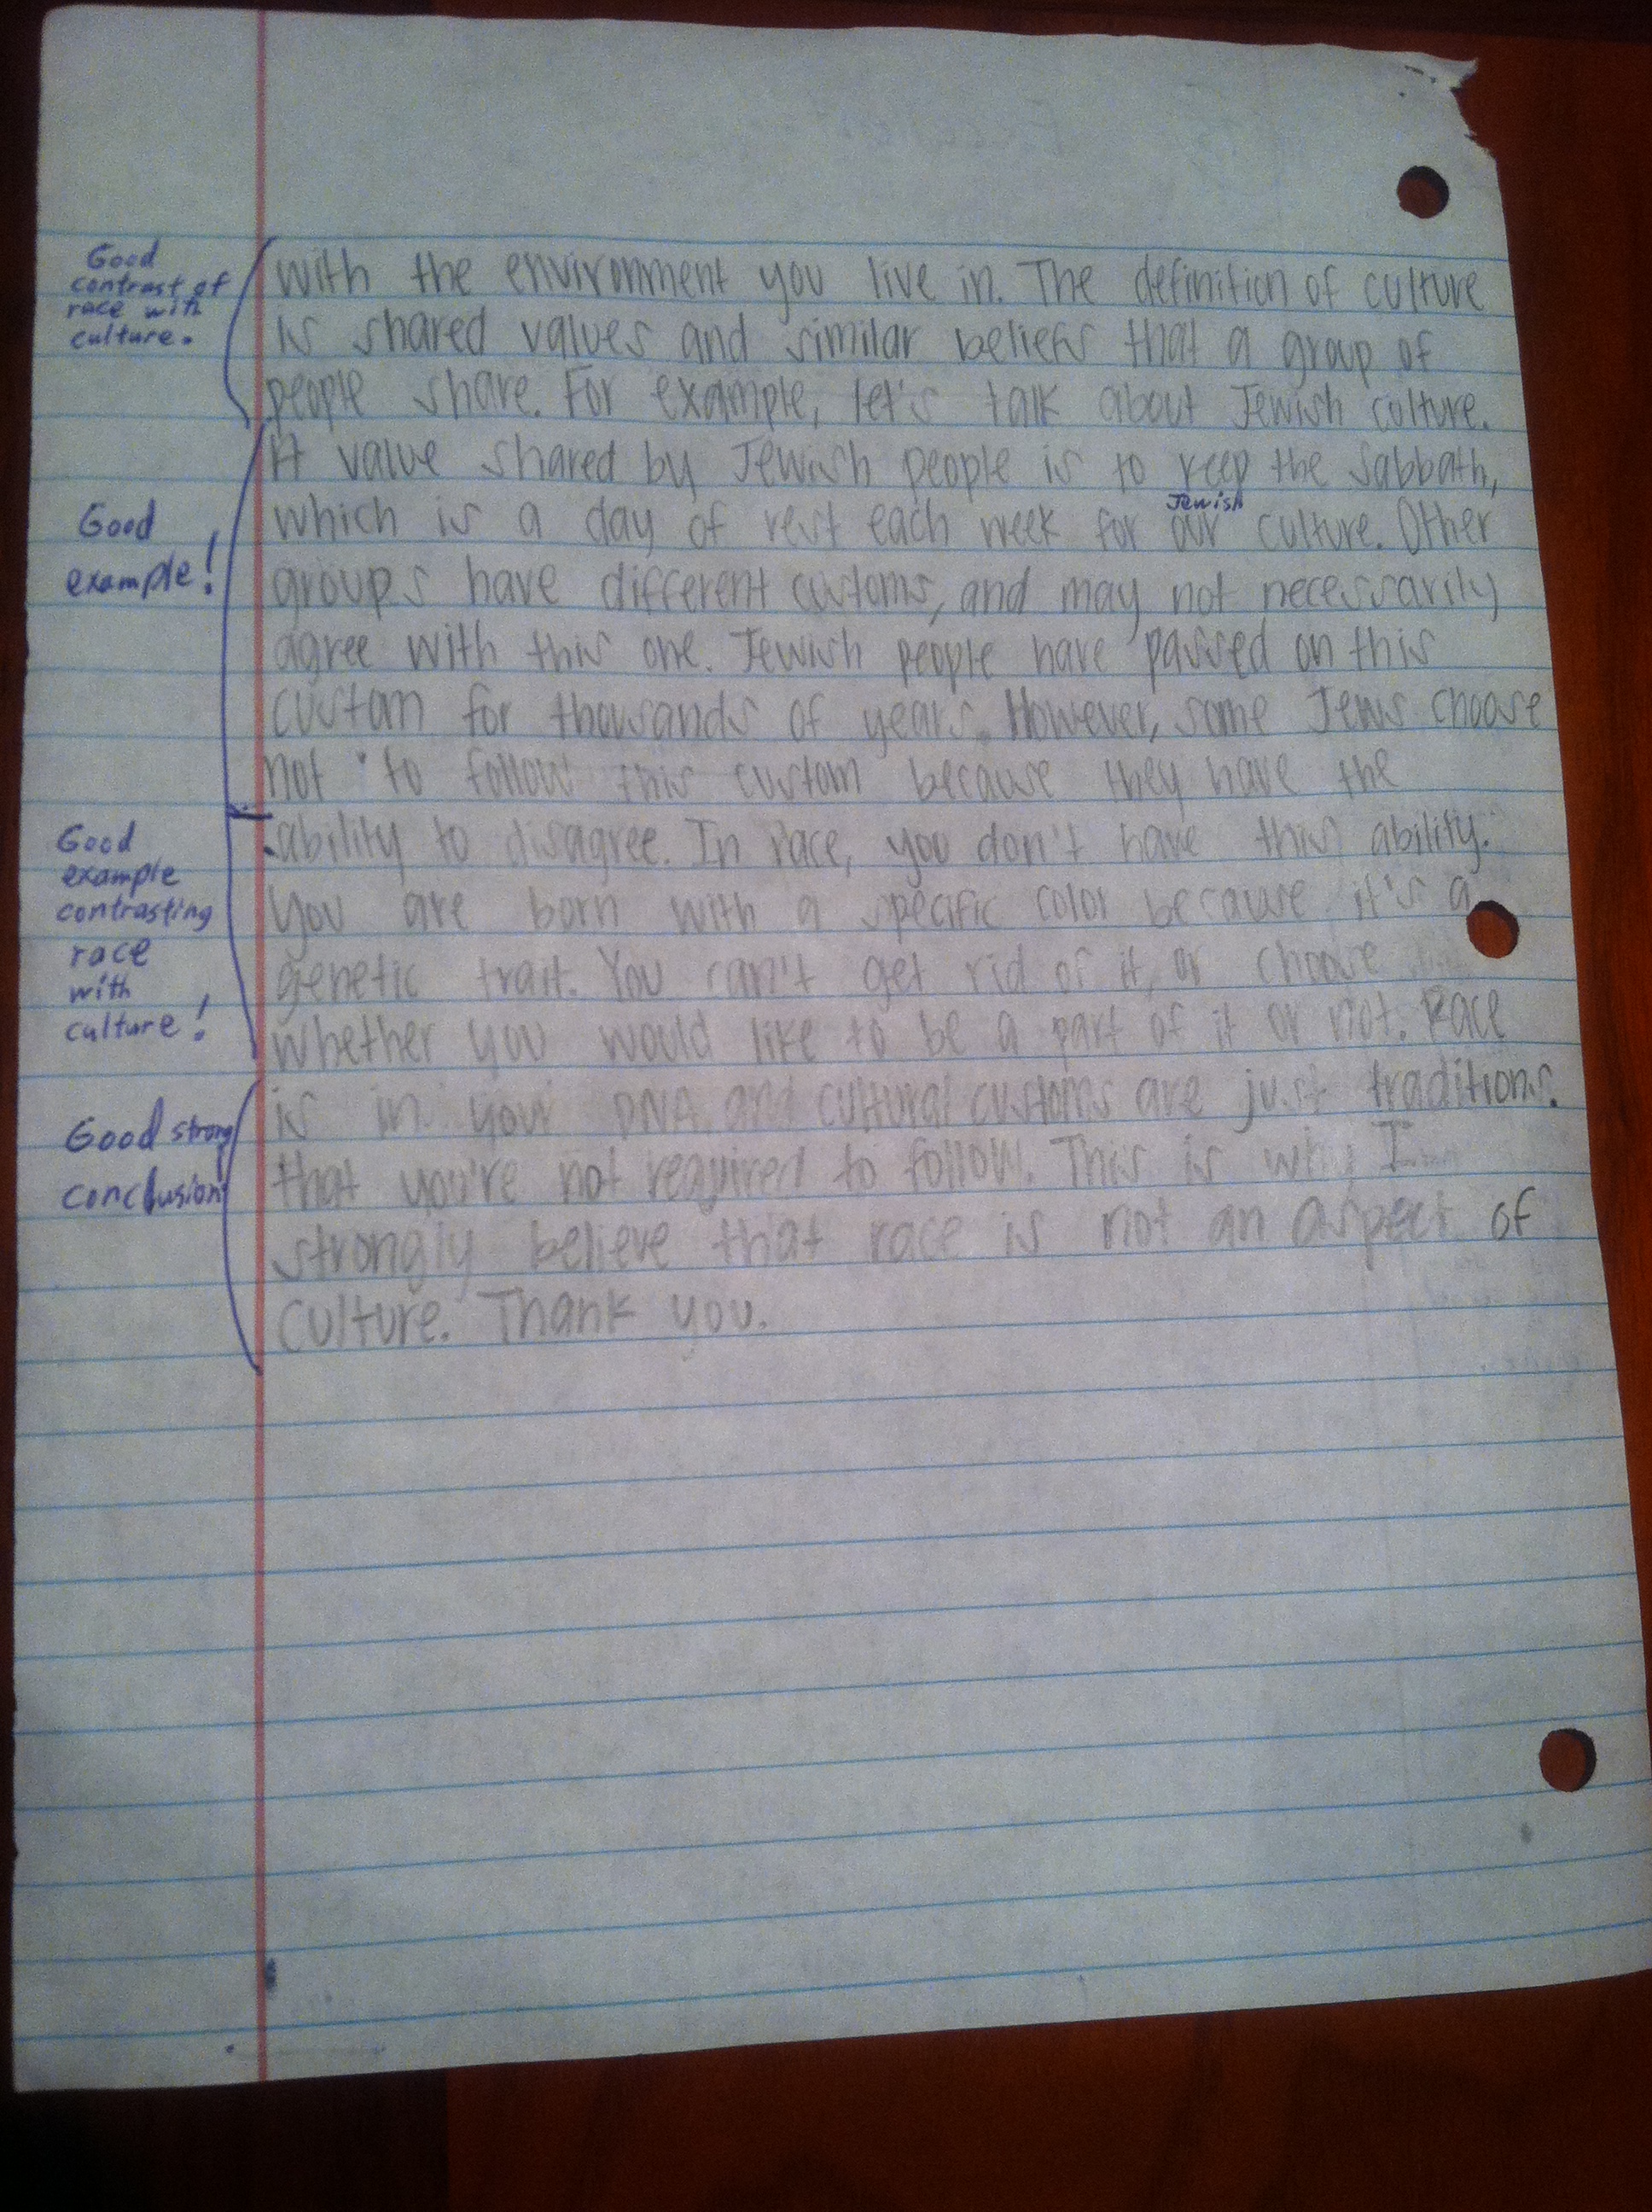 Good
contrast of
race with
culture.
with the environment you live in. The definition of culture
is shared values and similar beliefs that a group of
people share. For example, let's talk about Jewish culture.
A value shared by Jewish people is to keep the Sabbath,
Good
example!
Jewish
which is a day of rest each week for our culture. Other
groups have different customs, and may not necessarily
agree with this one. Jewish people have passed on this
custom for thousands of years. However, some Jews choose
not to follow this custom because they have the
Good
example
contrasting
race
with
culture!
ability to disagree. In race, you don't have this ability.
You are born with a specific color because it's a
genetic trait. You can't get rid of it, or choose
whether you would like to be a part of it or not. Race
Good strong
conclusion
is in your DNA and cultural customs are just traditions.
that you're not required to follow. This is why I
strongly believe that race is not an aspect of
culture. Thank you.